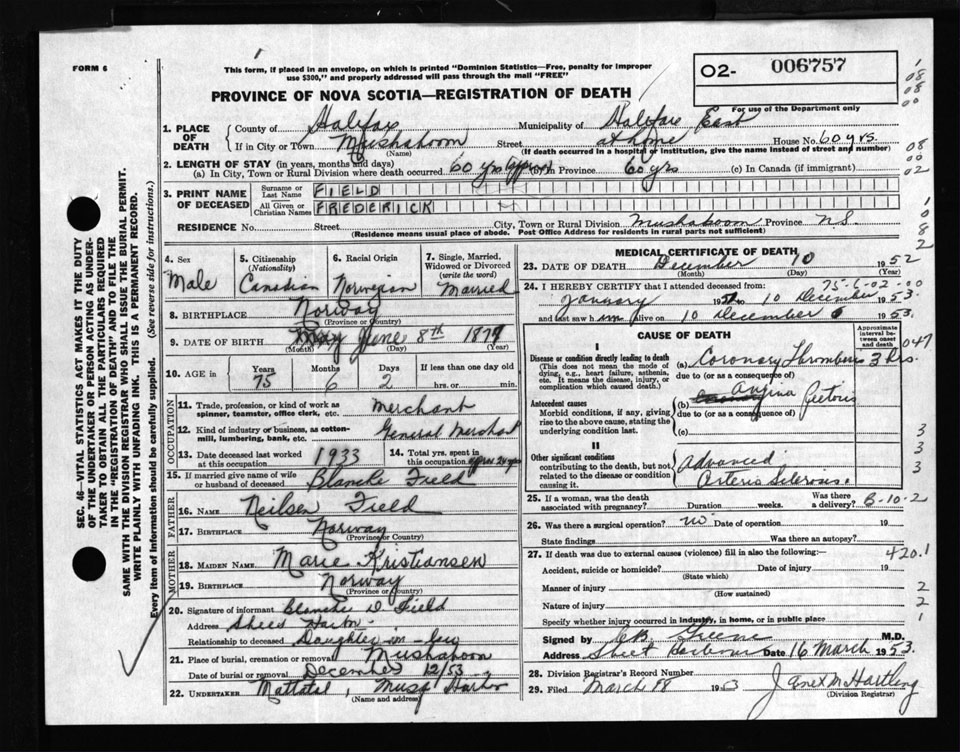 FORM 6
This form, if placed in an envelope, on which is printed "Dominion Statistics—Free, penalty for improper
use $300," and properly addressed will pass through the mail "FREE"
02- 006757
For use of the Department only
PROVINCE OF NOVA SCOTIA—REGISTRATION OF DEATH
1. PLACE OF DEATH
County of Halifax Municipality of Halifax East
If in City or Town Mushaboom Street at home House No. 60 yrs.
(Name) (If death occurred in a hospital or institution, give the name instead of street and number)
2. LENGTH OF STAY (in years, months and days)
(a) In City, Town or Rural Division where death occurred 60 yrs (approx) (b) In Province 60 yrs (c) In Canada (if immigrant)
3. PRINT NAME OF DECEASED
Surname or Last Name FIELD
All Given or Christian Names FREDERICK
RESIDENCE No. Street City, Town or Rural Division Mushaboom Province N.S.
(Residence means usual place of abode. Post Office Address for residents in rural parts not sufficient)
4. Sex Male
5. Citizenship (Nationality) Canadian
6. Racial Origin Norwegian
7. Single, Married, Widowed or Divorced (write the word) Married
8. BIRTHPLACE Norway
(Province or Country)
9. DATE OF BIRTH May June 8th 1877
(Month) (Day) (Year)
10. AGE in Years 75 Months 6 Days 2 If less than one day old hrs. or min.
OCCUPATION
11. Trade, profession, or kind of work as spinner, teamster, office clerk, etc. Merchant
12. Kind of industry or business, as cotton-mill, lumbering, bank, etc. General Merchant
13. Date deceased last worked at this occupation 1933
14. Total yrs. spent in this occupation approx 20 yrs
15. If married give name of wife or husband of deceased Blanche Field
FATHER
16. NAME Neilsen Field
17. BIRTHPLACE Norway
(Province or Country)
MOTHER
18. MAIDEN NAME Marie Kristiansen
19. BIRTHPLACE Norway
(Province or Country)
20. Signature of informant Blanche D. Field
Address Sheet Harbor
Relationship to deceased Daughter-in-law
21. Place of burial, cremation or removal Mushaboom
Date of burial or removal December 12/53
22. UNDERTAKER Mattatal, Musq Harbor
(Name and address)
MEDICAL CERTIFICATE OF DEATH
23. DATE OF DEATH December 10 1952
(Month) (Day) (Year)
75-6-02-00
24. I HEREBY CERTIFY that I attended deceased from:
January 19 to 10 December 1953.
and last saw him alive on 10 December 1953.
CAUSE OF DEATH
Approximate interval between onset and death
I
Disease or condition directly leading to death
(This does not mean the mode of dying, e.g., heart failure, asthenia, etc. It means the disease, injury, or complication which caused death.)
(a) Coronary Thrombosis 3 hrs.
due to (or as a consequence of)
Antecedent causes
Morbid conditions, if any, giving rise to the above cause, stating the underlying condition last.
(b) Angina Pectoris
due to (or as a consequence of)
(c)
II
Other significant conditions
contributing to the death, but not related to the disease or condition causing it.
Advanced
Arterio Sclerosis.
25. If a woman, was the death associated with pregnancy? Duration weeks. Was there a delivery? B-10-2
26. Was there a surgical operation? no Date of operation 19
State findings Was there an autopsy?
27. If death was due to external causes (violence) fill in also the following:— 420.1
Accident, suicide or homicide? Date of injury 19
(State which)
Manner of injury
(How sustained)
Nature of injury
Specify whether injury occurred in industry, in home, or in public place
Signed by C B Greene M.D.
Address Sheet Harbour Date 16 March 1953.
28. Division Registrar's Record Number
29. Filed March 18 1953 Janet M Hartling
(Division Registrar)
SEC. 46—VITAL STATISTICS ACT MAKES IT THE DUTY
OF THE UNDERTAKER OR PERSON ACTING AS UNDER-
TAKER TO OBTAIN ALL THE PARTICULARS REQUIRED
IN THE "REGISTRATION OF DEATH" AND TO FILE THE
SAME WITH THE DIVISION REGISTRAR WHO SHALL ISSUE THE BURIAL PERMIT.
WRITE PLAINLY WITH UNFADING INK. THIS IS A PERMANENT RECORD.
Every item of information should be carefully supplied. (See reverse side for instructions.)
1
08
08
00
08
00
02
1
0
8
2
047
3
3
3
2
2
1